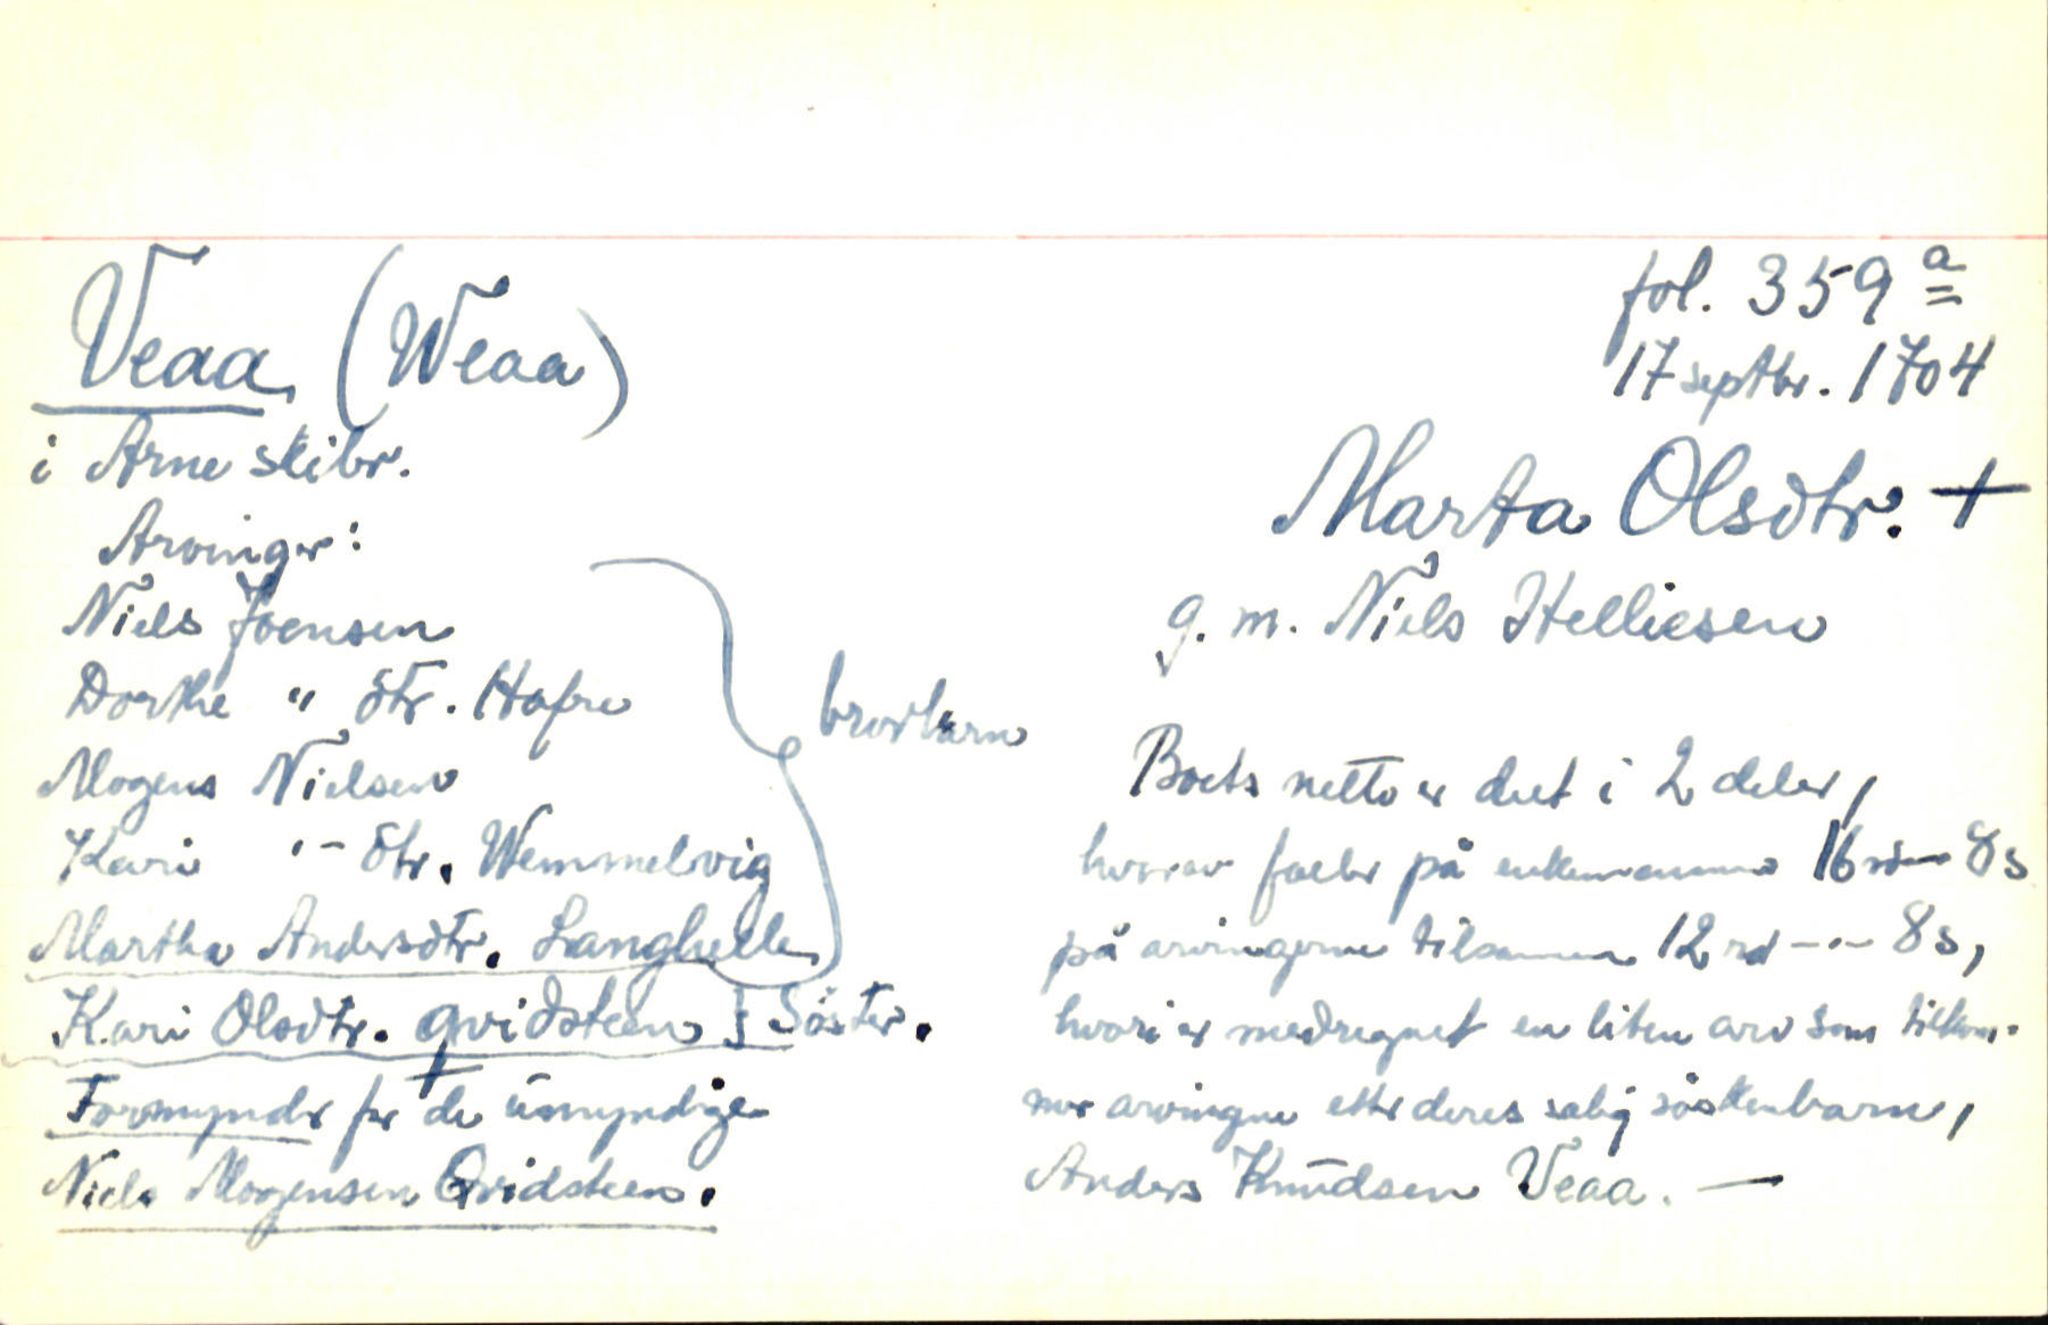 Veaa (Weaa)
i Arne skibr.
Arvinger:
Niels Joensen
Dorthe " dtr. Hafre
Mogens Nielsen
Kari -"- dtr. Wemmelvig
Martha Andersdtr. Langhelle
brorbarn
Kari Olsdtr. Qvidsteen } Söster.
Formynder for de umyndige
Niels Mogensen Qvidsteen.
fol. 359 a
17 septbr. 1704
Marta Olsdtr. +
g. m. Niels Helliesen
Boets netto er delt i 2 deler,
hvorav faller på enkemannen 16 rd -"- 8 s
på arvingerne tilsammen 12 rd -"- 8 s,
hvori er medregnet en liten arv som tilkom-
mer arvingene efter deres salig söskenbarn,
Anders Knudsen Veaa. —